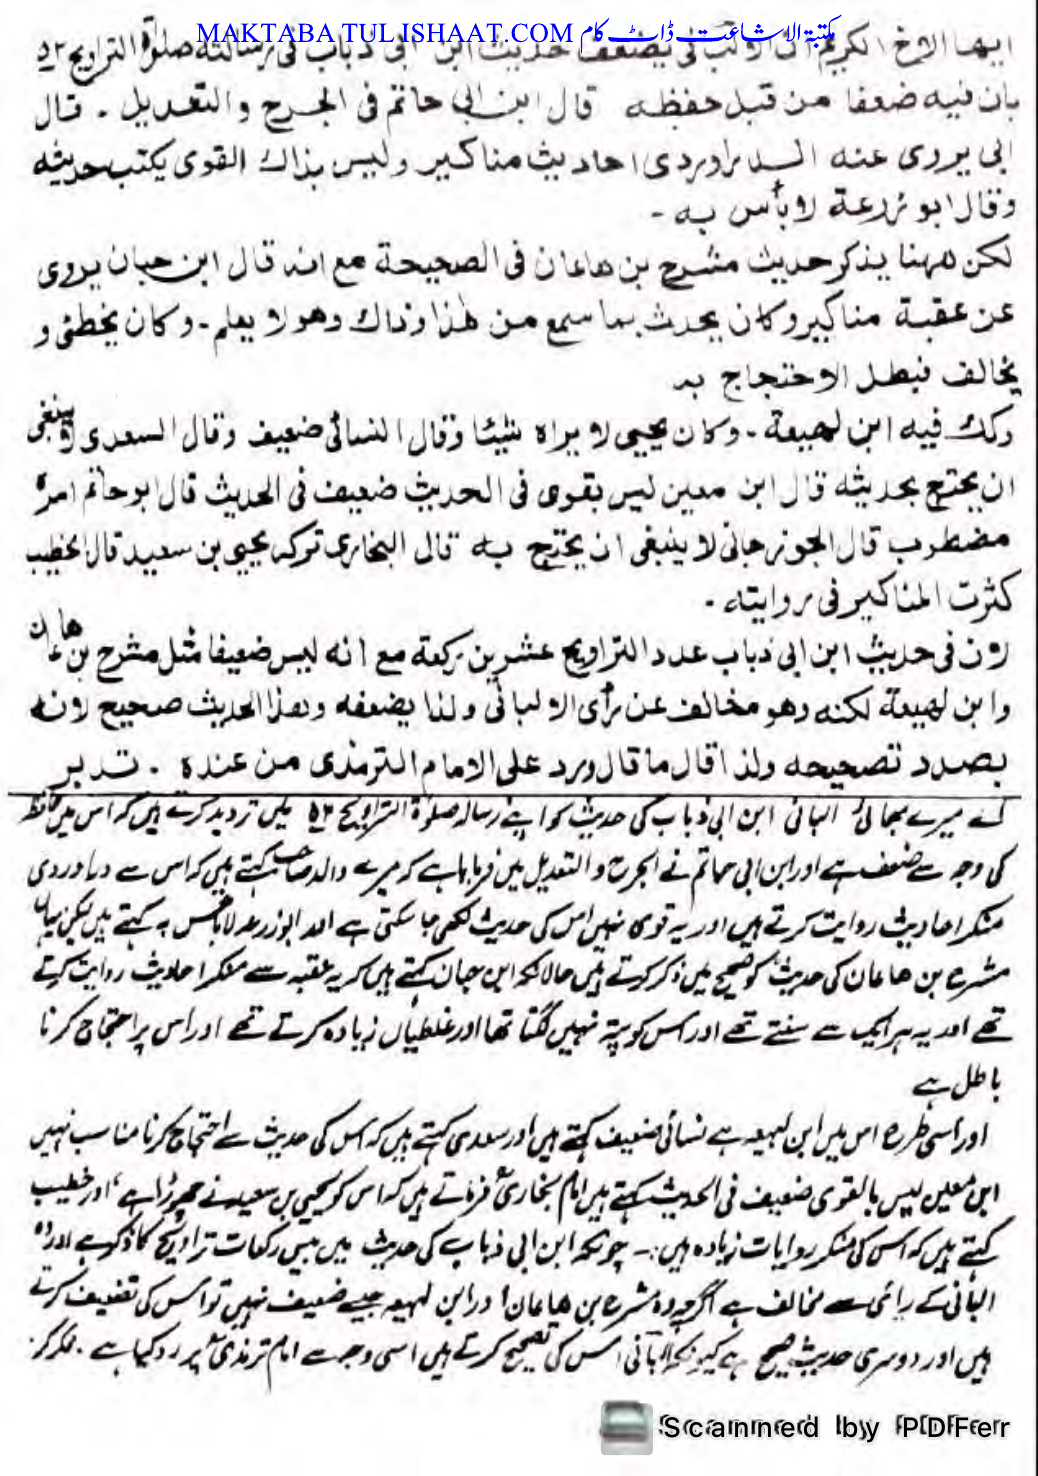 MAKTABA TUL ISHAAT.COM مکتبۃ الاشاعت ڈاٹ کام
ایها الاخ الکریم ان الالبانی یضعف حدیث ابن ابی ذباب فی رسالته صلوٰة التراویح ص۵۲
بان فیه ضعفا من قبل حفظه قال ابن ابی حاتم فی الجرح والتعدیل . قال
ابی یروی عنه الدراوردی احادیث مناکیر ولیس بذاك القوی یکتب حدیثه
وقال ابو زرعة لا بأس به -
لکن ههنا یذکر حدیث مشرح بن هاعان فی الصحیحة مع انه قال ابن حبان یروی
عن عقبة مناکیر وکان یحدث بما سمع من هذا وذاك وهو لا یعلم - وکان یخطئ و
یخالف فبطل الاحتجاج به
وکذ فیه ابن لهیعة - وکان یحیی لا یراه شیئا وقال النسائی ضعیف وقال السعدی لا ینبغی
ان یحتج بحدیثه قال ابن معین لیس بقوی فی الحدیث ضعیف فی الحدیث قال ابو حاتم امره
مضطرب قال الجوزجانی لا ینبغی ان یحتج به قال البخاری ترکه یحیی بن سعید قال الخطیب
کثرت المناکیر فی روایتاه -
لان فی حدیث ابن ابی ذباب عدد التراویح عشرین رکعة مع انه لیس ضعیفا مثل مشرح بن هاعان
وابن لهیعة لکنه وهو مخالف عن رأی الالبانی ولذا یضعفه وهذا الحدیث صحیح لانه
بصدد تصحیحه ولذا قال ما قال ورد علی الامام الترمذی من عنده . تدبر
اے میرے بھائی البانی ابن ابی ذباب کی حدیث کو اپنے رسالہ صلوٰۃ التراویح ص۵۲ میں تردید کرتے ہیں کہ اس میں حافظ
کی وجہ سے ضعف ہے اور ابن ابی حاتم نے الجرح والتعدیل میں فرمایا ہے کہ میرے والد صاحب کہتے ہیں کہ اس سے دراوردی
منکر احادیث روایت کرتے ہیں اور یہ قوی نہیں اس کی حدیث لکھی جا سکتی ہے اور ابوزرعہ لا بأس بہ کہتے ہیں لیکن یہاں
مشرح بن ھاعان کی حدیث کو صحیح میں ذکر کرتے ہیں حالانکہ ابن حبان کہتے ہیں کہ یہ عقبہ سے منکر احادیث روایت کرتے
تھے اور یہ ہر ایک سے سنتے تھے اور اس کو پتہ نہیں لگتا تھا اور غلطیاں زیادہ کرتے تھے اور اس پر احتجاج کرنا
باطل ہے
اور اسی طرح اس میں ابن لہیعہ ہے نسائی ضعیف کہتے ہیں اور سعدی کہتے ہیں کہ اس کی حدیث سے احتجاج کرنا مناسب نہیں
ابن معین لیس بالقوی ضعیف فی الحدیث کہتے ہیں امام بخاریؒ فرماتے ہیں کہ اس کو یحیی بن سعید نے چھوڑا ہے، اور خطیب
کہتے ہیں کہ اس کی منکر روایات زیادہ ہیں :- چونکہ ابن ابی ذباب کی حدیث میں بیس رکعات تراویح کا ذکر ہے اور وہ
البانی کے رائے سے مخالف ہے اگرچہ وہ مشرح بن ھاعان اور ابن لہیعہ جیسے ضعیف نہیں تو اس کی تضعیف کرتے
ہیں اور دوسری حدیث صحیح ہے کیونکہ البانی اس کی تصحیح کرتے ہیں اسی وجہ سے امام ترمذیؒ پر رد کیا ہے . فکر کر:
Scanned by PDFer